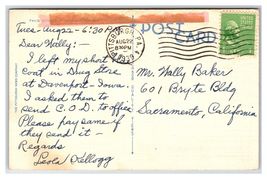 POST CARD
PITTSBURGH, PA.
AUG 22
8 30 PM
Tues - Aug 22 - 6:30 P.M.
Dear Wally:
I left my short
coat in Drug Store
at Davenport - Iowa.
I asked them to
send C.O.D. to office
Please pay same if
they send it -
Regards
Leota Kellogg
Mr. Wally Baker
601 Bryte Bldg
Sacramento, California